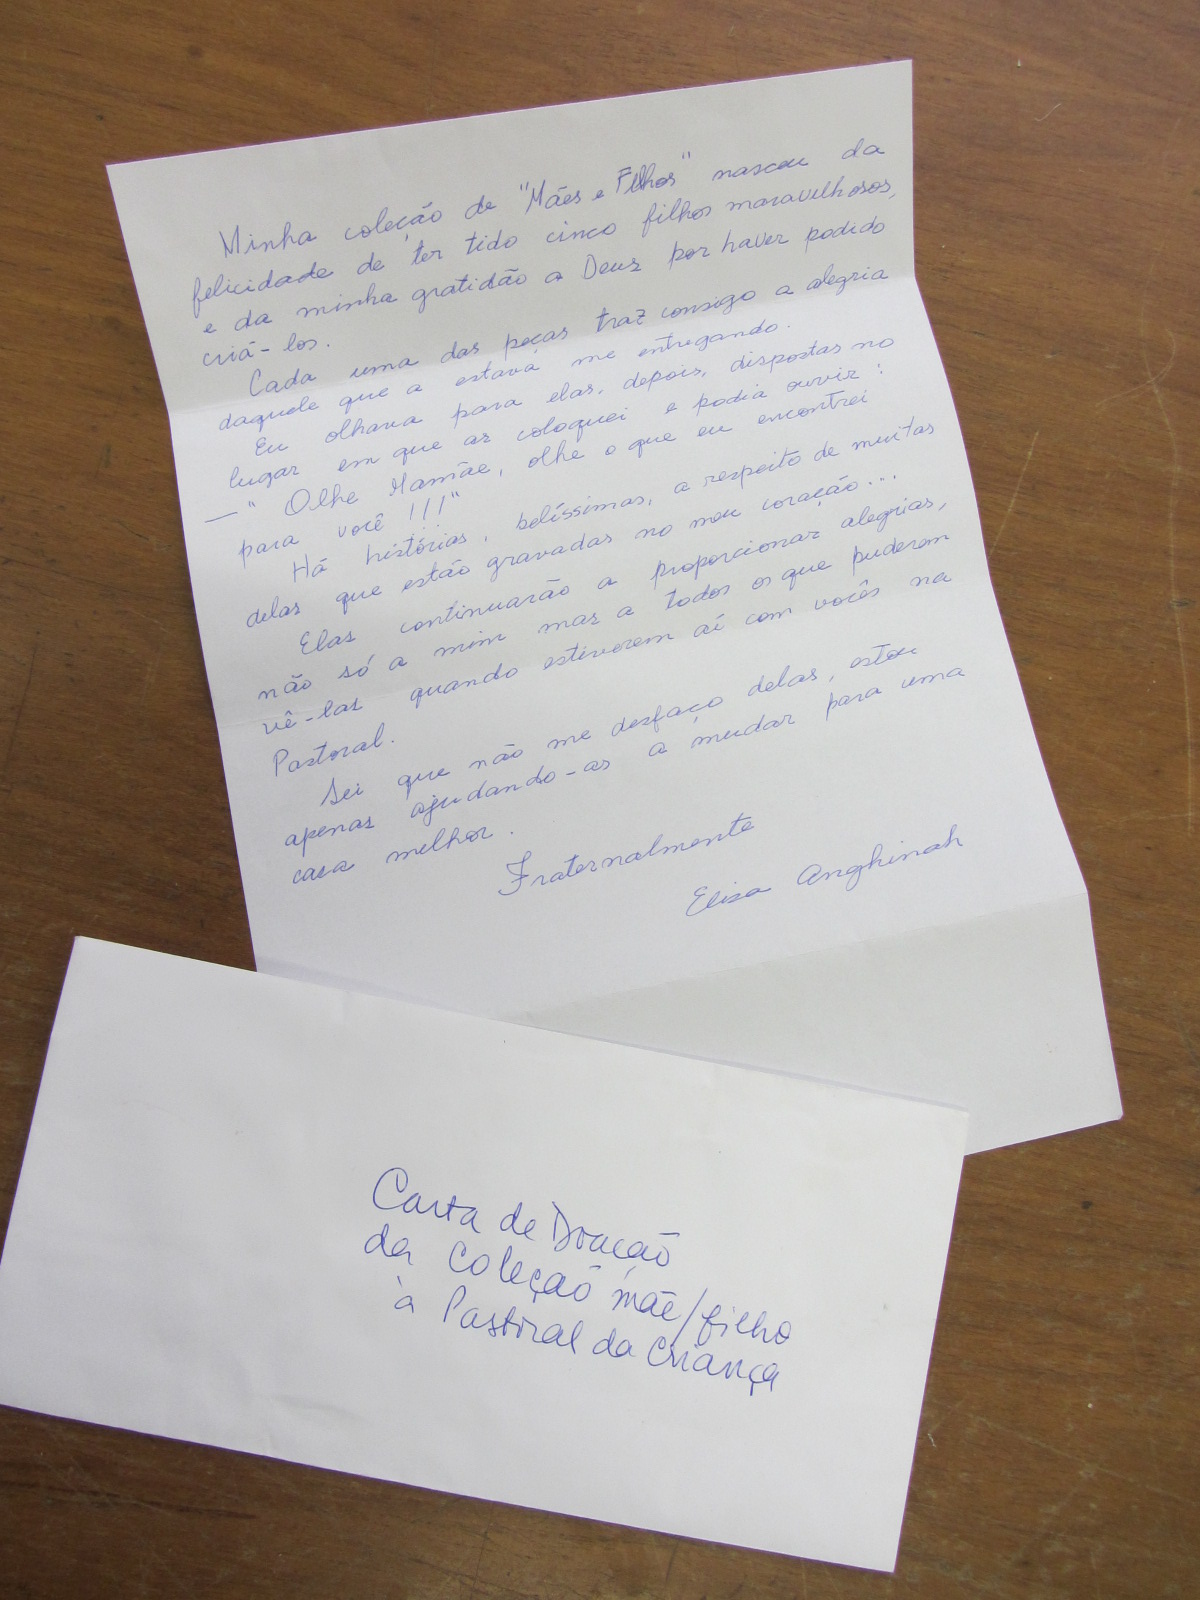 Minha coleção de "Mães e Filhos" nasceu da
felicidade de ter tido cinco filhos maravilhosos,
e da minha gratidão a Deus por haver podido
criá-los.
Cada uma das peças traz consigo a alegria
daquele que a estava me entregando.
Eu olhava para elas, depois, dispostas no
lugar em que as coloquei e podia ouvir:
—" Olhe Mamãe, olhe o que eu encontrei
para você !!!"
Há histórias, belíssimas, a respeito de muitas
delas que estão gravadas no meu coração...
Elas continuarão a proporcionar alegrias,
não só a mim mas a todos os que puderem
vê-las quando estiverem aí com vocês na
Pastoral.
Sei que não me desfaço delas, estou
apenas ajudando-as a mudar para uma
casa melhor.
Fraternalmente
Elisa Anghinah
Carta de Doação
da Coleção mãe/filho
à Pastoral da Criança